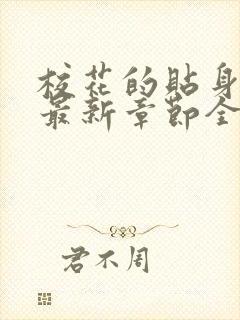 校花的贴身
最新章节全
君不周